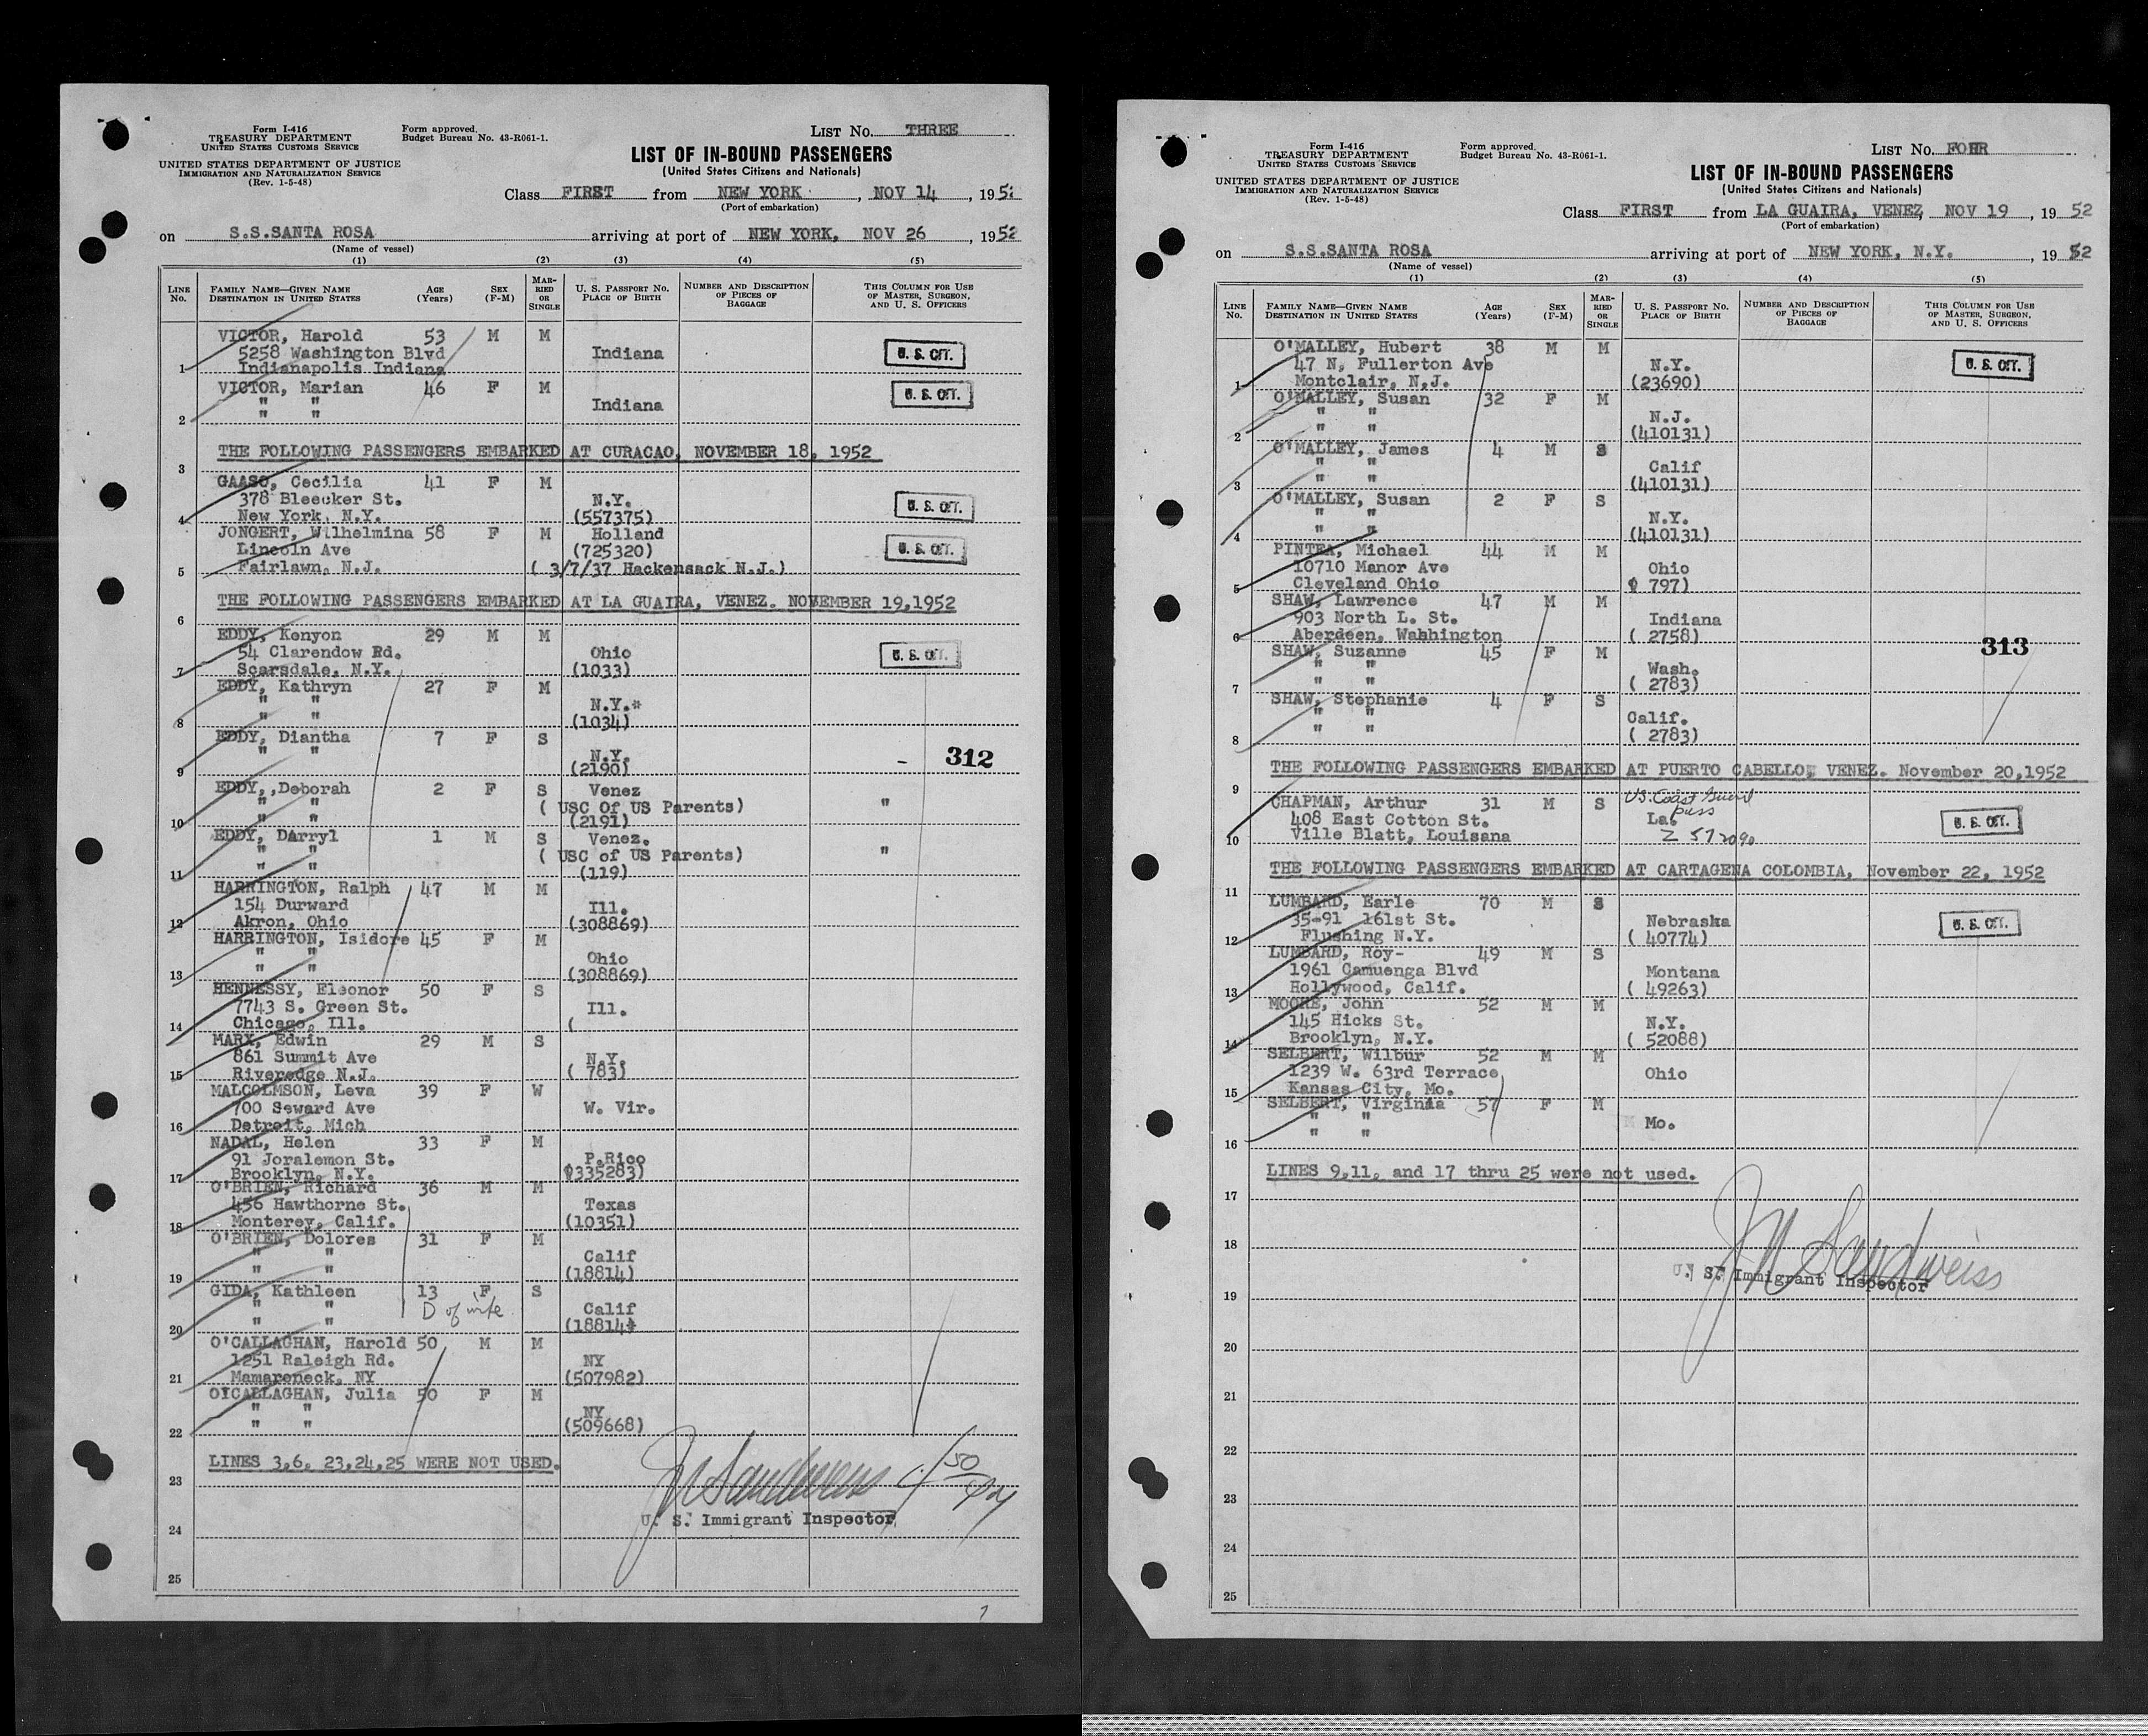 Form I-416
TREASURY DEPARTMENT
UNITED STATES CUSTOMS SERVICE
UNITED STATES DEPARTMENT OF JUSTICE
IMMIGRATION AND NATURALIZATION SERVICE
(Rev. 1-5-48)
Form approved.
Budget Bureau No. 43-R061-1.
LIST No. THREE
LIST OF IN-BOUND PASSENGERS
(United States Citizens and Nationals)
Class FIRST from NEW YORK, NOV 14, 195
(Port of embarkation)
on S.S.SANTA ROSA arriving at port of NEW YORK, NOV 26, 1952
(Name of vessel)
(1) (2) (3) (4) (5)
LINE No. FAMILY NAME—GIVEN NAME DESTINATION IN UNITED STATES AGE (Years) SEX (F-M) MARRIED OR SINGLE U. S. PASSPORT NO. PLACE OF BIRTH NUMBER AND DESCRIPTION OF PIECES OF BAGGAGE THIS COLUMN FOR USE OF MASTER, SURGEON, AND U. S. OFFICERS
VICTOR, Harold 53 M M
5258 Washington Blvd Indiana U. S. CIT.
1 Indianapolis Indiana
VICTOR, Marian 46 F M U. S. CIT.
" " Indiana
2 " "
THE FOLLOWING PASSENGERS EMBARKED AT CURACAO, NOVEMBER 18, 1952
3
GAASO, Cecilia 41 F M
378 Bleecker St. N.Y. U. S. CIT.
4 New York, N.Y. (557375)
JONGERT, Wilhelmina 58 F M Holland
Lincoln Ave (725320) U. S. CIT.
5 Fairlawn, N.J. ( 3/7/37 Hackensack N.J.)
THE FOLLOWING PASSENGERS EMBARKED AT LA GUAIRA, VENEZ. NOVEMBER 19,1952
6
EDDY, Kenyon 29 M M
54 Clarendow Rd. Ohio U. S. CIT.
7 Scarsdale, N.Y. (1033)
EDDY, Kathryn 27 F M
" " N.Y.*
8 " " (1034)
EDDY, Diantha 7 F S
" " N.Y.
9 (2190) - 312
EDDY,,Deborah 2 F S Venez
" " ( USC Of US Parents) "
10 " " (2191)
EDDY, DArryl 1 M S Venez.
" " ( USC of US Parents) "
11 " " (119)
HARRINGTON, Ralph 47 M M
154 Durward Ill.
12 Akron, Ohio (308869)
HARRINGTON, Isidore 45 F M
" " Ohio
13 " " (308869)
HENNESSY, Eleonor 50 F S
7743 S. Green St. Ill.
14 Chicago, Ill. (
MARX, Edwin 29 M S
861 Summit Ave N.Y.
15 Riveredge N.J. ( 783)
MALCOLMSON, Leva 39 F W
700 Seward Ave W. Vir.
16 Detroit, Mich
NADAL, Helen 33 F M
91 Joralemon St. P.Rico
17 Brooklyn, N.Y. (335283)
O'BRIEN, Richard 36 M M
456 Hawthorne St. Texas
18 Monterey, Calif. (10351)
O'BRIEN, Dolores 31 F M
" " Calif
19 " " (18814)
GIDA, Kathleen 13 F S
" " D of wife Calif
20 " " (18814
O'CALLAGHAN, Harold 50 M M
1251 Raleigh Rd. NY
21 Mamaroneck, NY (507982)
O'CALLAGHAN, Julia 50 F M
" " NY
22 " " (509668)
LINES 3,6, 23,24,25 WERE NOT USED.
23
U. S. Immigrant Inspector
24
25
Form I-416
TREASURY DEPARTMENT
UNITED STATES CUSTOMS SERVICE
UNITED STATES DEPARTMENT OF JUSTICE
IMMIGRATION AND NATURALIZATION SERVICE
(Rev. 1-5-48)
Form approved.
Budget Bureau No. 43-R061-1.
LIST No. FOUR
LIST OF IN-BOUND PASSENGERS
(United States Citizens and Nationals)
Class FIRST from LA GUAIRA, VENEZ, NOV 19, 1952
(Port of embarkation)
on S.S.SANTA ROSA arriving at port of NEW YORK, N.Y., 1952
(Name of vessel)
(1) (2) (3) (4) (5)
LINE No. FAMILY NAME—GIVEN NAME DESTINATION IN UNITED STATES AGE (Years) SEX (F-M) MARRIED OR SINGLE U. S. PASSPORT NO. PLACE OF BIRTH NUMBER AND DESCRIPTION OF PIECES OF BAGGAGE THIS COLUMN FOR USE OF MASTER, SURGEON, AND U. S. OFFICERS
O'MALLEY, Hubert 38 M M
47 N, Fullerton Ave N.Y. U. S. CIT.
1 Montclair, N.J. (23690)
O'MALLEY, Susan 32 F M
" " N.J.
2 " " (410131)
O'MALLEY, James 4 M S
" " Calif
3 " " (410131)
O'MALLEY, Susan 2 F S
" " N.Y.
4 " " (410131)
PINTEA, Michael 44 M M
10710 Manor Ave Ohio
5 Cleveland Ohio 797)
SHAW, Lawrence 47 M M
903 North L. St. Indiana
6 Aberdeen, Wahhington ( 2758) 313
SHAW, Suzanne 45 F M
" " Wash.
7 " " ( 2783)
SHAW, Stephanie 4 F S
" " Calif.
8 " " ( 2783)
THE FOLLOWING PASSENGERS EMBARKED AT PUERTO CABELLO, VENEZ. November 20,1952
9
CHAPMAN, Arthur 31 M S US. Coast Guard pass
408 East Cotton St. La. U. S. CIT.
10 Ville Blatt, Louisana Z 572090
THE FOLLOWING PASSENGERS EMBARKED AT CARTAGENA COLOMBIA, November 22, 1952
11
LUMBARD, Earle 70 M S
35-91 161st St. Nebraska U. S. CIT.
12 Flushing N.Y. ( 40774)
LUMBARD, Roy- 49 M S
1961 Camuenga Blvd Montana
13 Hollywood, Calif. ( 49263)
MOORE, John 52 M M
145 Hicks St. N.Y.
14 Brooklyn, N.Y. ( 52088)
SELBERT, Wilbur 52 M M
1239 W. 63rd Terrace Ohio
15 Kansas City, Mo.
SELBERT, Virginia 57 F M
" " Mo.
16 " "
LINES 9,11, and 17 thru 25 were not used.
17
18
J M Sandweiss
U. S. Immigrant Inspector
19
20
21
22
23
24
25